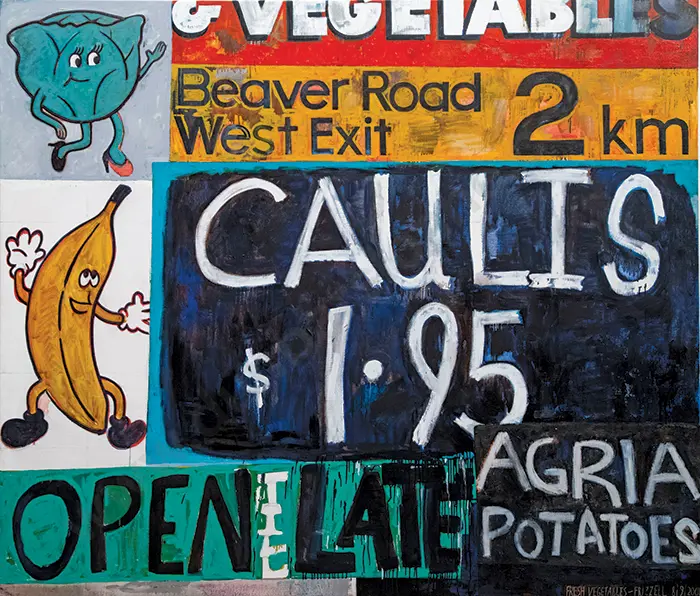 & VEGETABLES
Beaver Road
West Exit
2 km
CAULIS
$ 1.95
AGRIA
POTATOES
OPEN TIL LATE
FRESH VEGETABLES - FRIZZELL